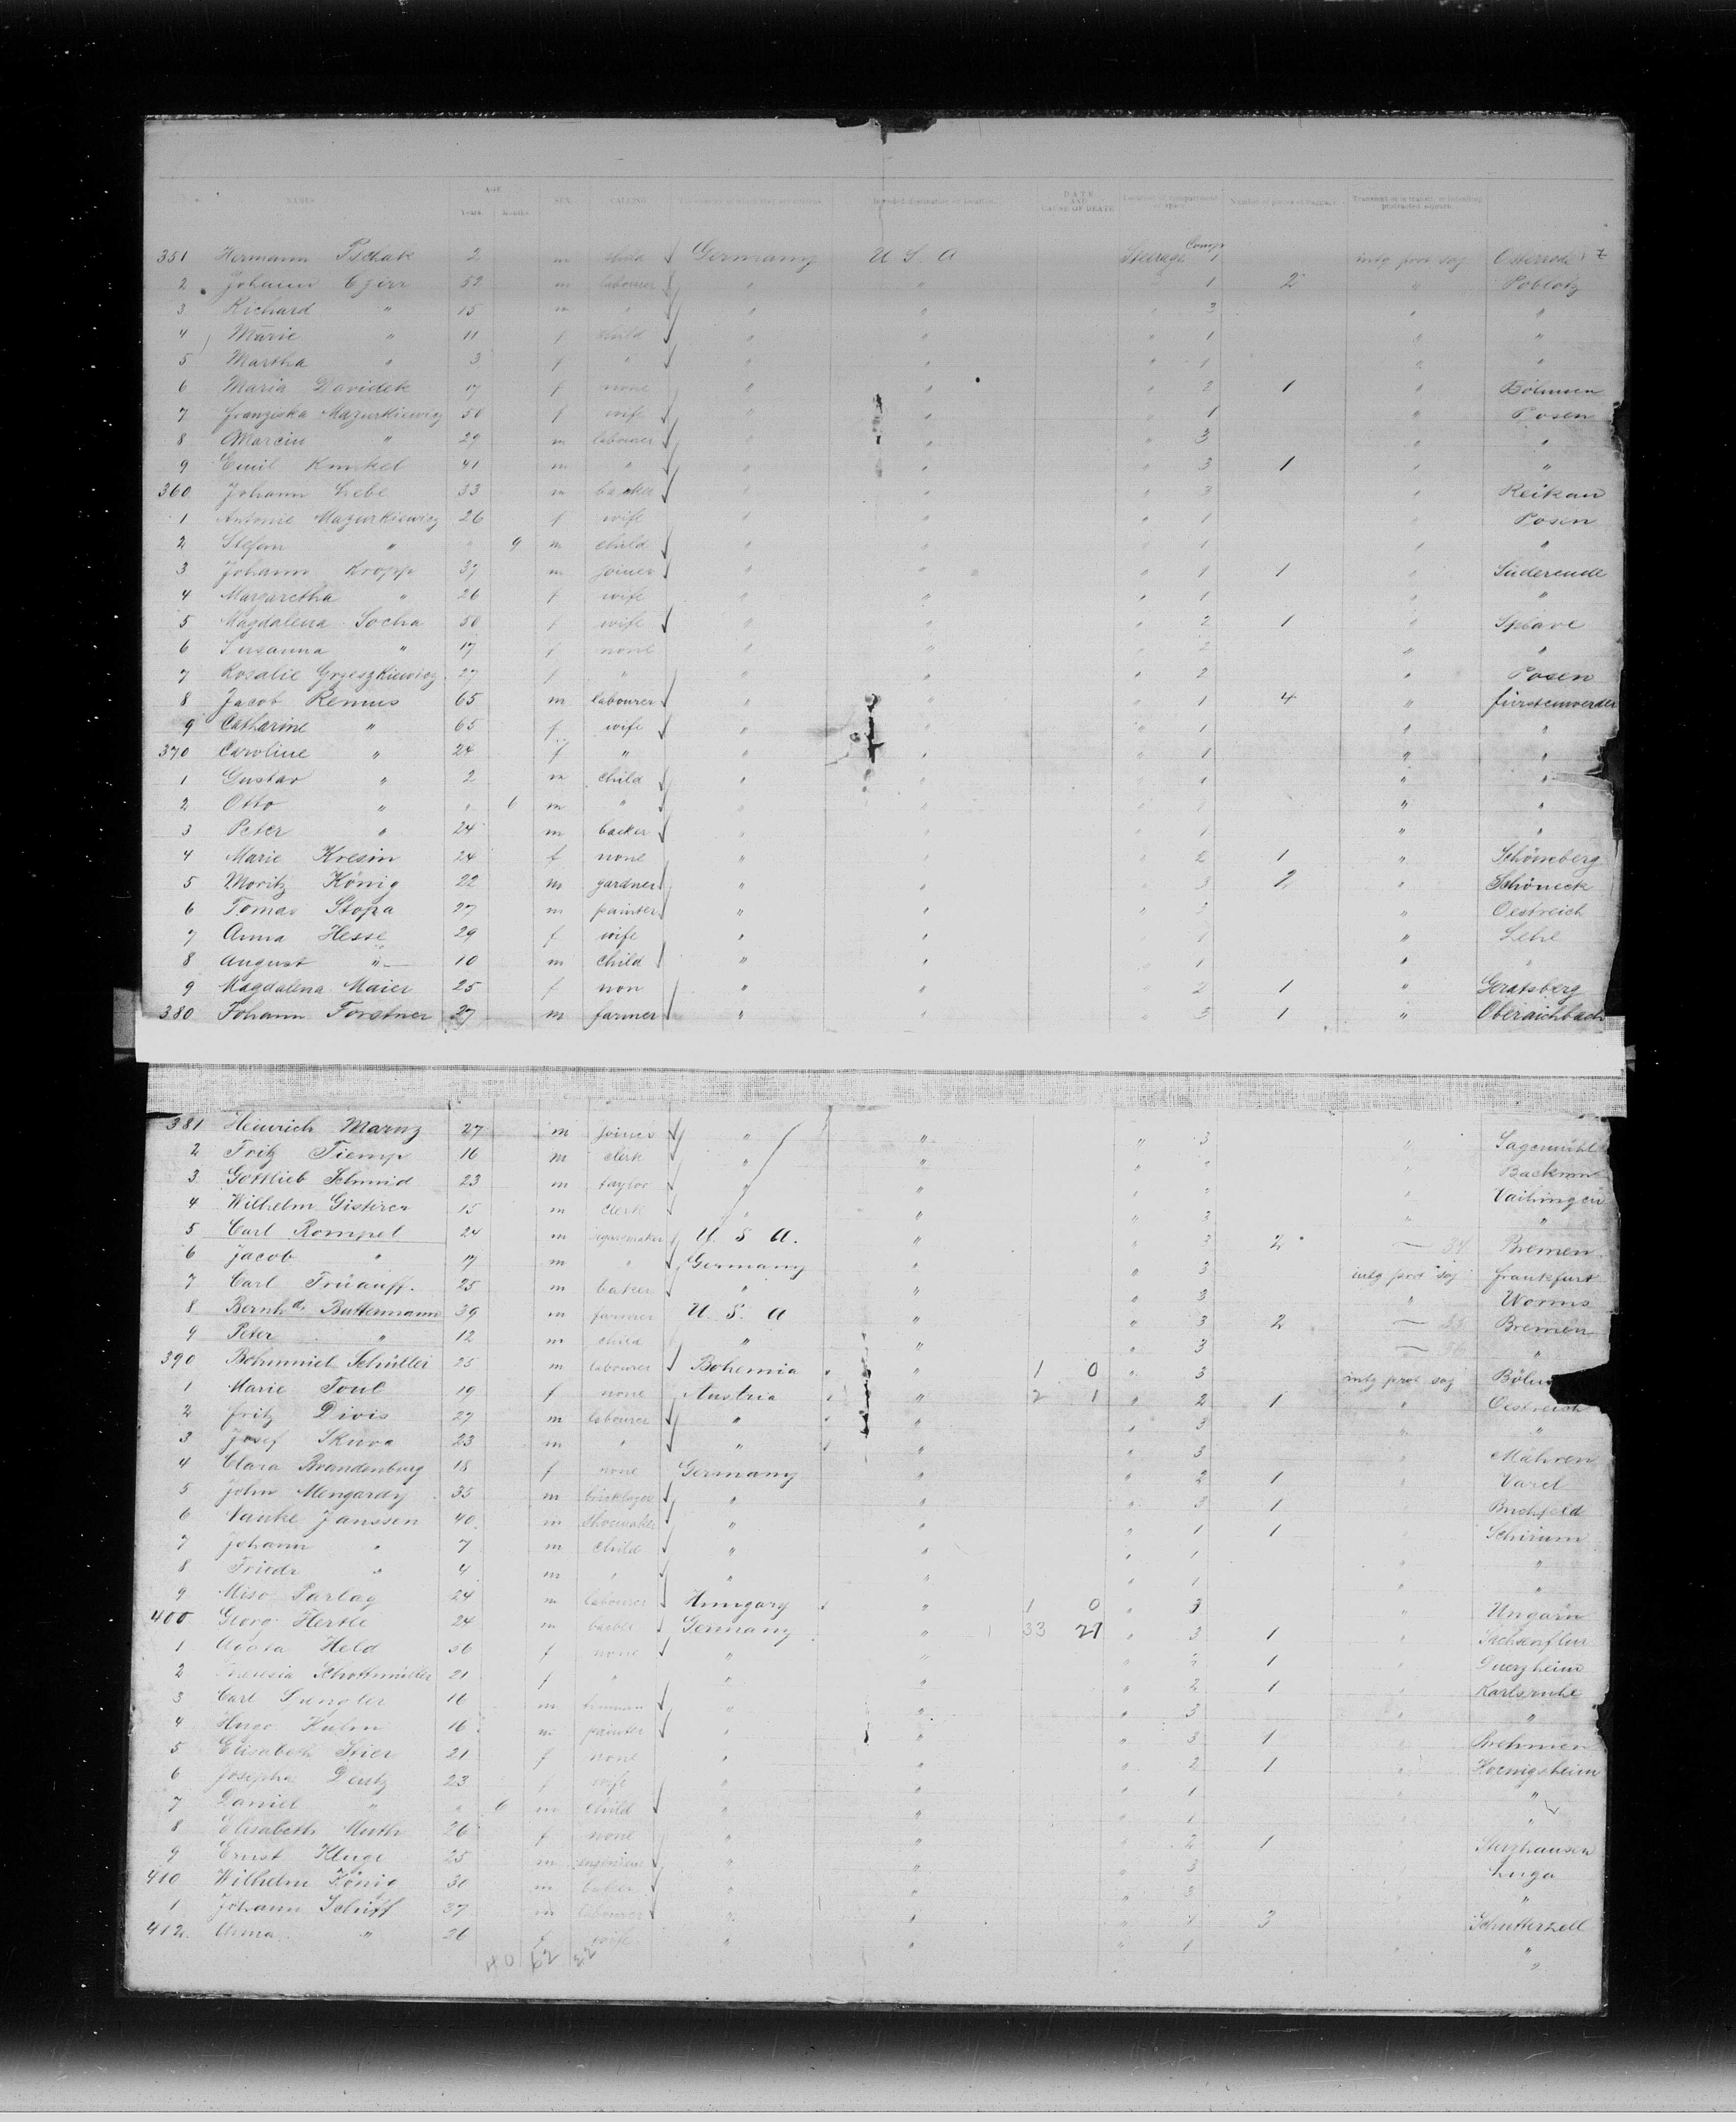 NAMES AGE Years. Months. SEX CALLING The country of which they are citizens. Intended destination or location. DATE AND CAUSE OF DEATH Location of compartment or space. Number of pieces of baggage. Transient or in transit, or intending protracted sojourn.
351 Hermann 2 m child Germany U S A Steerage Comp 1 intg prot soj Osterrode
2 Johann Czirr 52 m labourer " " " 1 2 " Poblotz
3 Richard " 15 m " " " " 3 " "
4 Marie " 11 f child " " " 1 " "
5 Martha " 3 f " " " " 1 " "
6 Maria Davidek 17 f none " " " 2 1 " Böhmen
7 Franziska Mazurkiewicz 50 f wife " " " 1 " Posen
8 Marcin " 29 m labourer " " " 3 " "
9 Emil Kunkel 41 m " " " " 3 1 " "
360 Johann Liebe 33 m backer " " " 3 " Reikan
1 Antonie Mazurkiewicz 26 f wife " " " 1 " Posen
2 Stefan " " 9 m child " " " 1 " "
3 Johann Kropp 37 m joiner " " " 1 1 " Süderende
4 Margaretha " 26 f wife " " " 1 " "
5 Magdalena Socha 50 f wife " " " 2 1 "
6 Susanna " 17 f none " " " 2 " "
7 Rozalie Grzeszkiewicz 27 f " " " " 2 " Posen
8 Jacob Remus 65 m labourer " " " 1 4 " fürstenwerder
9 Catharine " 65 f wife " " " 1 " "
370 Caroline " 24 f " " " " 1 " "
1 Gustav " 2 m child " " " 1 " "
2 Otto " " 6 m " " " " 1 " "
3 Peter " 24 m backer " " " 1 " "
4 Marie Kresin 24 f none " " " 2 1 " Schöneberg
5 Moritz König 22 m gardner " " " 3 2 " Schöneck
6 Tomas Stopa 27 m painter " " " 3 " Oestreich
7 Anna Hesse 29 f wife " " " 1 " Lehe
8 August " 10 m child " " " 1 " "
9 Magdalena Maier 25 f non " " " 2 1 " Geratsberg
380 Johann Forstner 27 m farmer " " " 3 1 " Oberaichbach
381 Heinrich Marnz 27 m joiner " " " 3 " Sagemühl
2 Fritz Tiemp 16 m clerk " " " " " Backnm
3 Gottlieb Schmid 23 m taylor " " " " " Vaihingen
4 Wilhelm Gisterer 15 m clerk " " " 3 " "
5 Carl Rompel 24 m U. S. A. " " 3 2 Bremen
6 Jacob " 17 m " Germany " " 3 intg prot soj Frankfurt
7 Carl Früauff 25 m baker " " " 3 " Worms
8 Bernhd Buttermann 39 m farmer U. S. A " " 3 2 Bremen
9 Peter " 12 m child " " " 3 "
390 Schüller 25 m labourer Bohemia " 1 0 " 3 intg prot soj
1 Marie Toul 19 f none Austria " 2 1 " 2 1 " Oestreich
2 Fritz Divis 27 m labourer " " " 3 " "
3 Josef Skuva 23 m " " " " 3 " Mähren
4 Clara Brandenburg 18 f none Germany " " 2 1 " Varel
5 John Mengardy 35 m bricklayer " " " 3 1 " Buchfeld
6 Janssen 40 m shoemaker " " " 1 1 " Schirum
7 Johann " 7 m child " " " 1 " "
8 Friedr " 4 m " " " " 1 " "
9 Miso Parlag 24 m labourer Hungary " 1 0 " 3 " Ungarn
400 Georg Hertle 24 m Germany " 33 27 " 3 1 " Sachsenflur
1 Held f none " " " 2 1 "
2 Theresia Schottmüller 21 f " " " " 2 1 " Karlsruhe
3 Carl 16 m " " " 3 " "
4 Hugo 16 m painter " " " 3 1 "
5 Elisabeth 21 f none " " " 2 1 " Koenigsheim
6 Josepha Deutz 23 f wife " " " 1 " "
7 Daniel " " 6 m child " " " 1 " "
8 Elisabeth Muth 26 f none " " " 2 1
9 Ernst Kluge 25 m " " " 3 Luga
410 Wilhelm König 30 m baker " " " 3 "
1 Johann Schiff 37 m labourer " " " 1 3 Schutterzell
412 Anna " 26 f wife " " " 1 " "
40 62 22